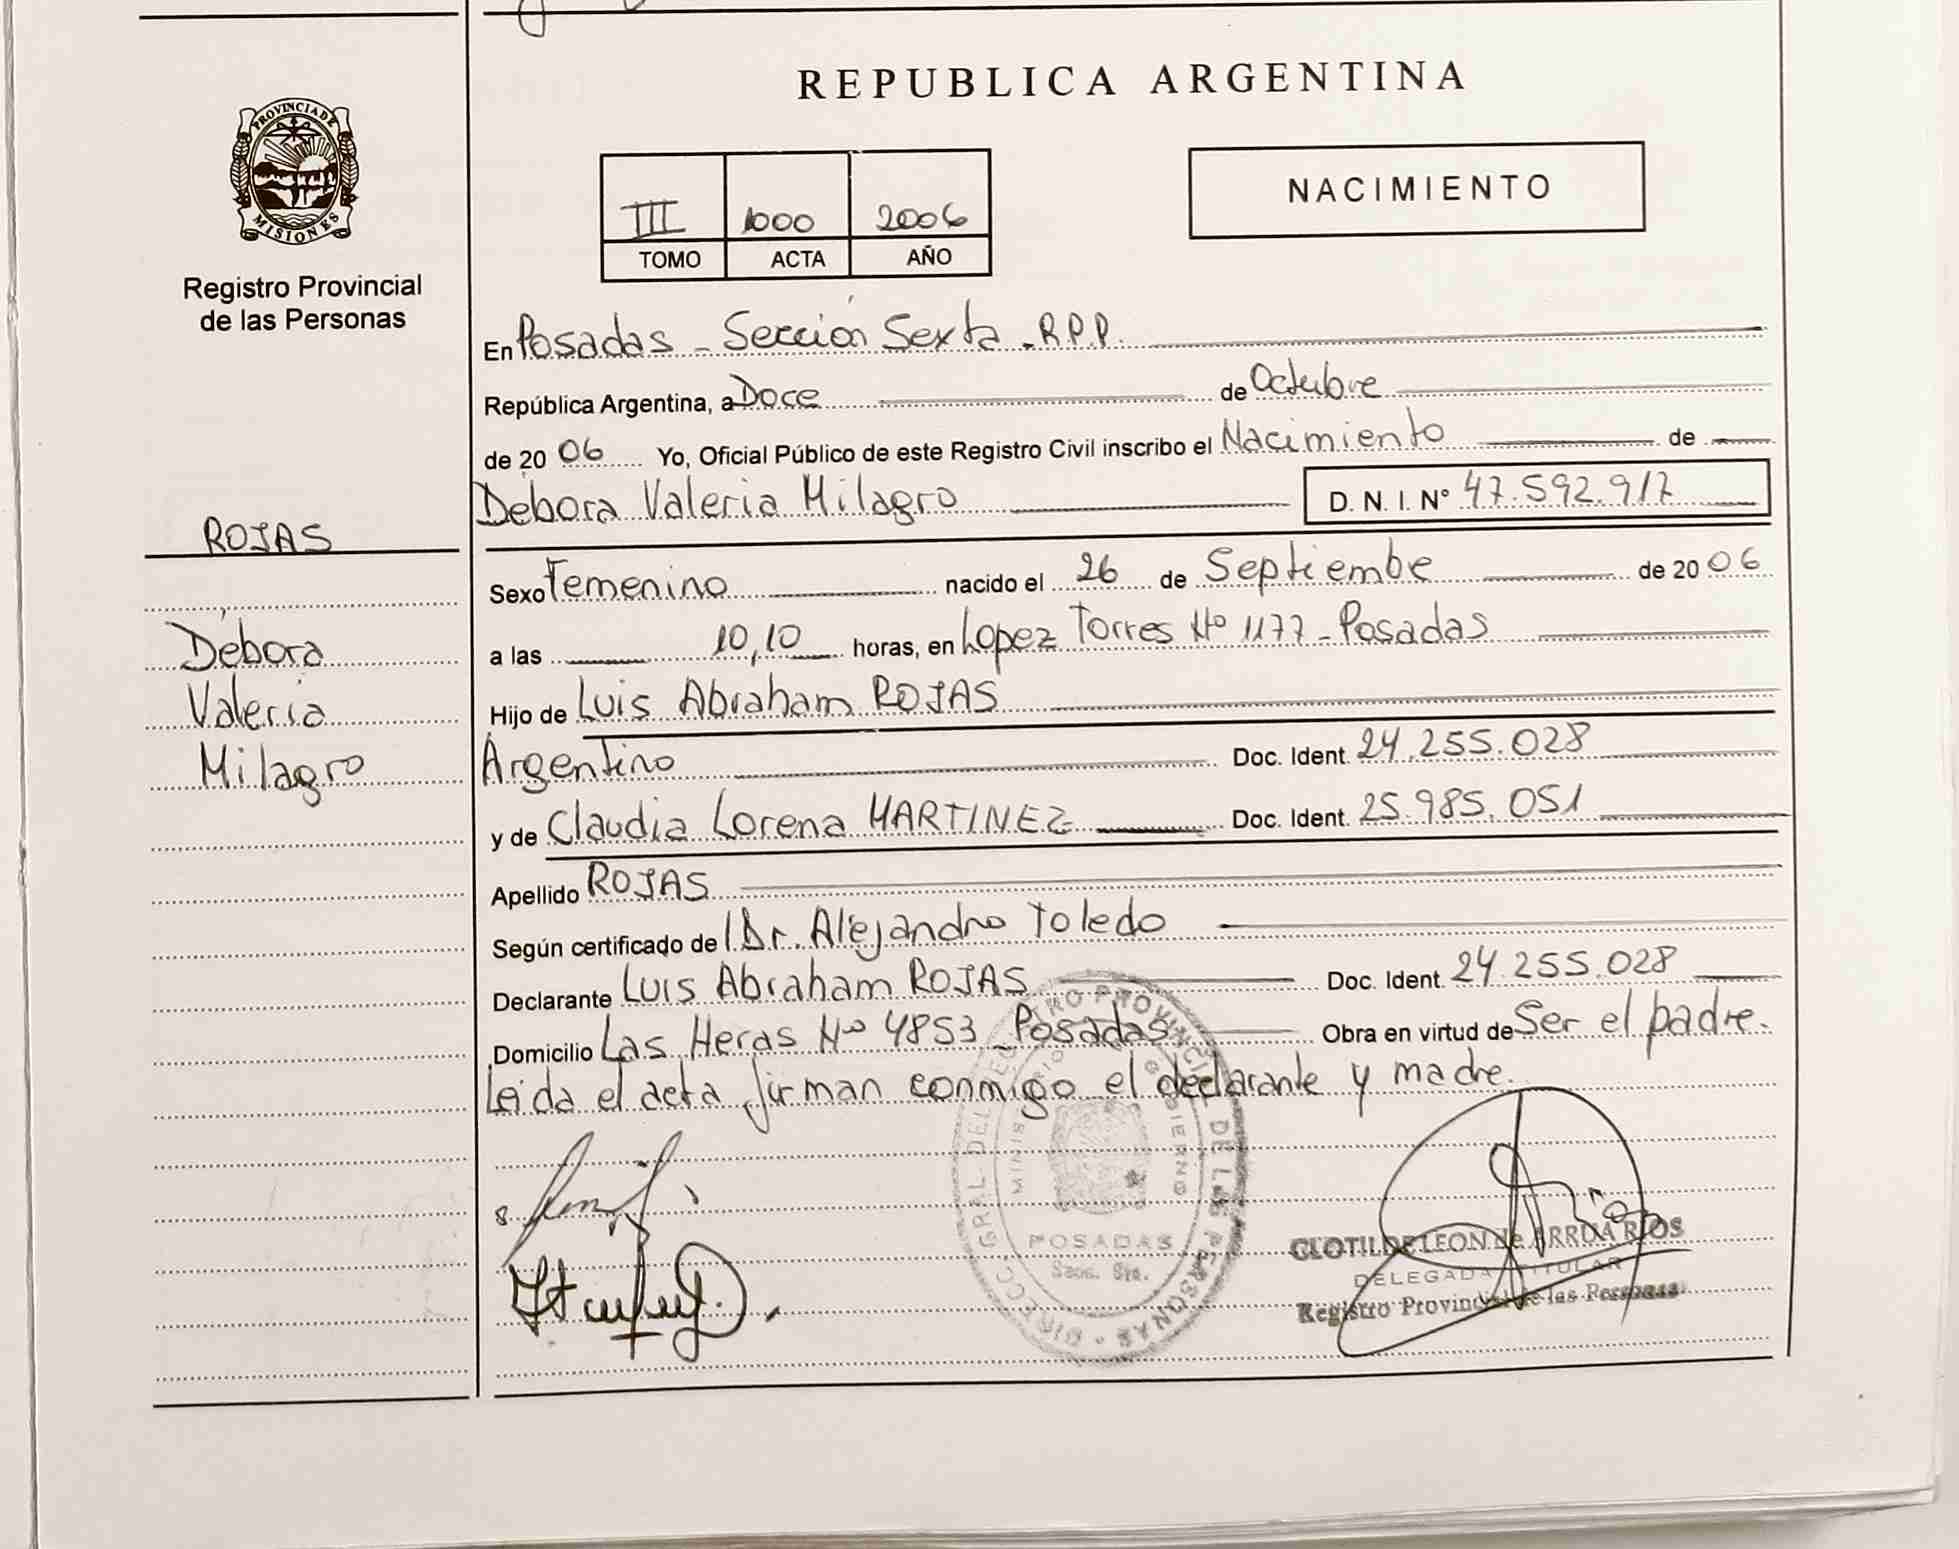 REPUBLICA ARGENTINA
PROVINCIA DE
MISIONES
Registro Provincial
de las Personas
III 1000 2006
TOMO ACTA AÑO
NACIMIENTO
En Posadas - Sección Sexta - R.P.P.
República Argentina, a Doce de Octubre
de 20 06 Yo, Oficial Público de este Registro Civil inscribo el Nacimiento de
Debora Valeria Milagro D. N. I. N° 47.592.917
ROJAS
Débora
Valeria
Milagro
Sexo Femenino nacido el 26 de Septiembre de 20 06
a las 10,10 horas, en Lopez Torres Nº 1177 - Posadas
Hijo de Luis Abraham ROJAS
Argentino Doc. Ident. 24.255.028
y de Claudia Lorena MARTINEZ Doc. Ident. 25.985.051
Apellido ROJAS
Según certificado de l Dr. Alejandro Toledo
Declarante Luis Abraham ROJAS Doc. Ident. 24.255.028
Domicilio Las Heras Nº 4853 - Posadas Obra en virtud de Ser el padre.
Leida el acta, firman conmigo el declarante y madre.
DIRECC. GRAL. DEL REGISTRO PROVINCIAL DE LAS PERSONAS
MINISTERIO GOBIERNO
POSADAS
CLOTILDE LEON de ARRUA RIOS
DELEGADA TITULAR
Registro Provincial de las Personas